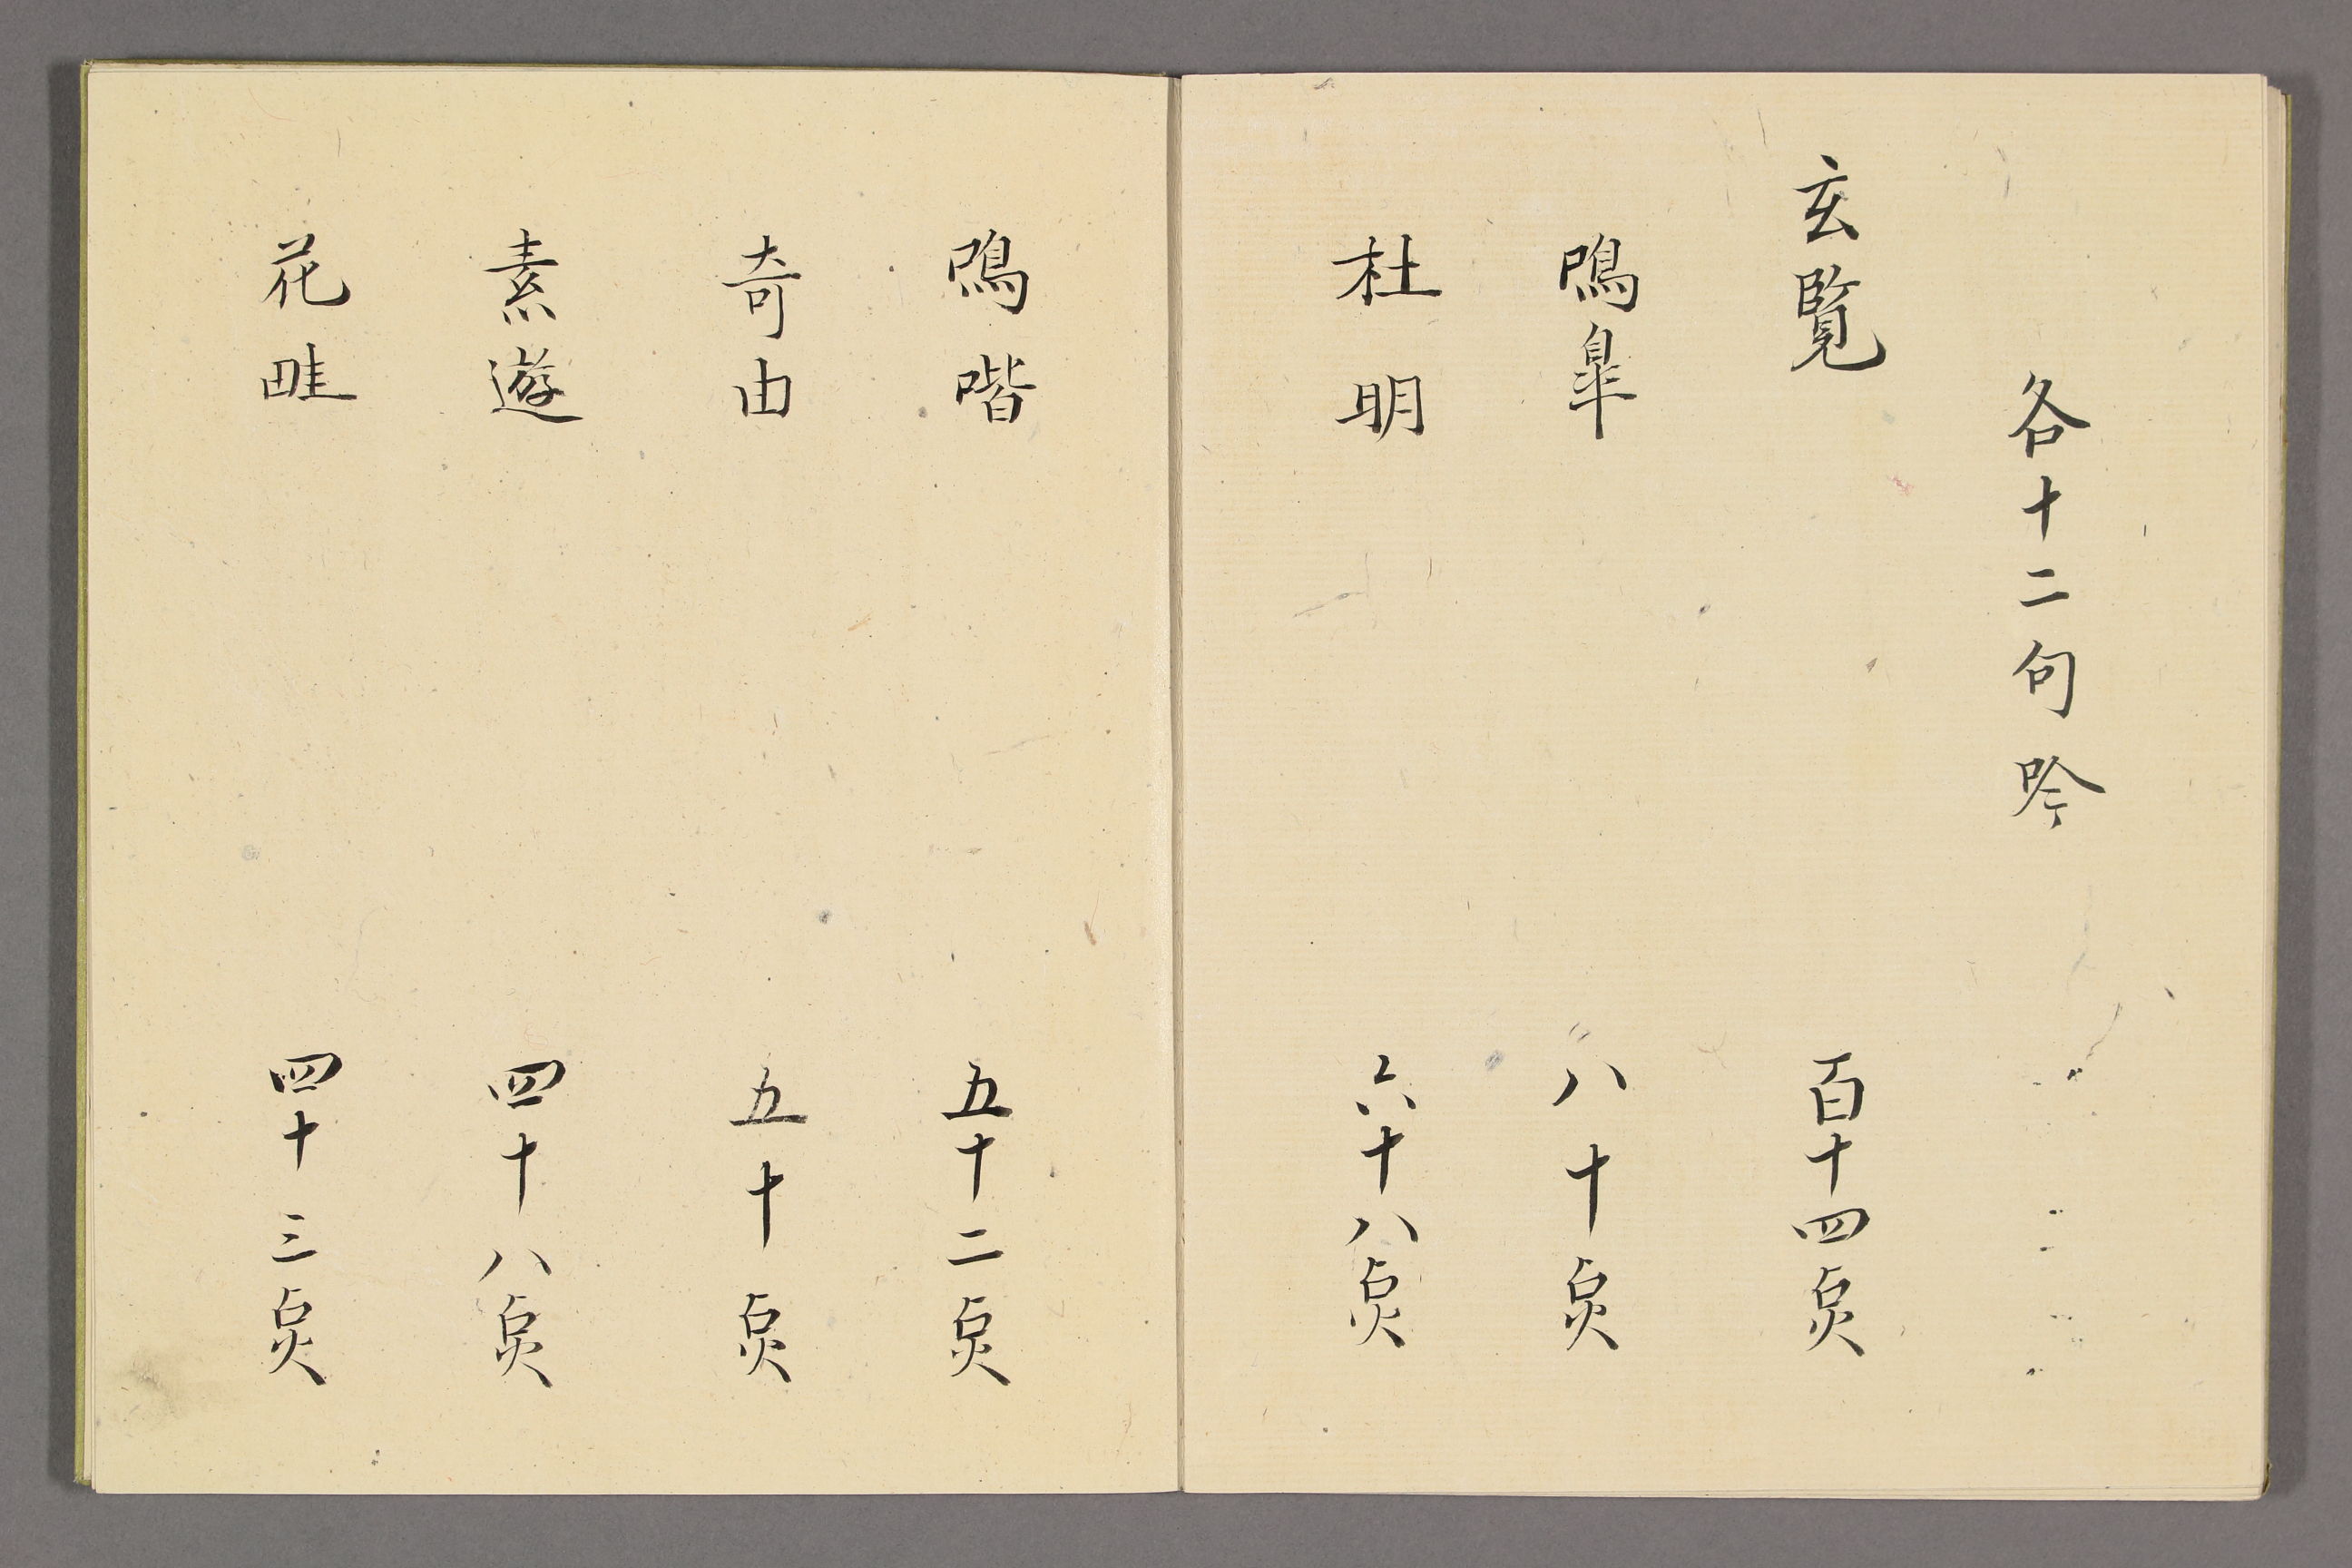 各十二句吟
玄覧 百十四点
鳴皐 八十点
杜明 六十八点
鳴喈 五十二点
奇由 五十点
素遊 四十八点
花畦 四十三点